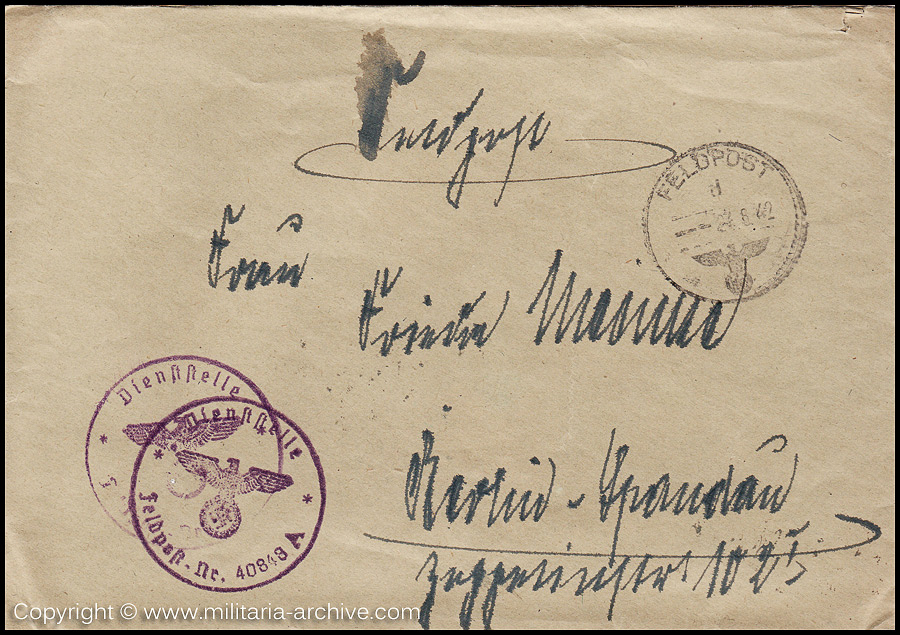 Feldpost
FELDPOST
d
24.8.42
Frau
Frieda
Dienststelle
Dienststelle
Feldpost-Nr. 40848 A
Berlin-Spandau
Zeppelinstr. 102
Copyright © www.militaria-archive.com